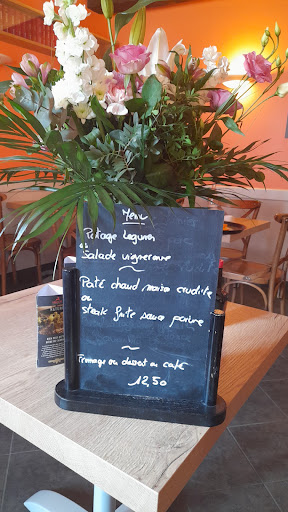 Menu
Potage legumes
ou
Salade vigneronne
~
Paté chaud maison crudités
ou
steak frite sauce poivre
~
Fromage ou dessert ou café
12,50